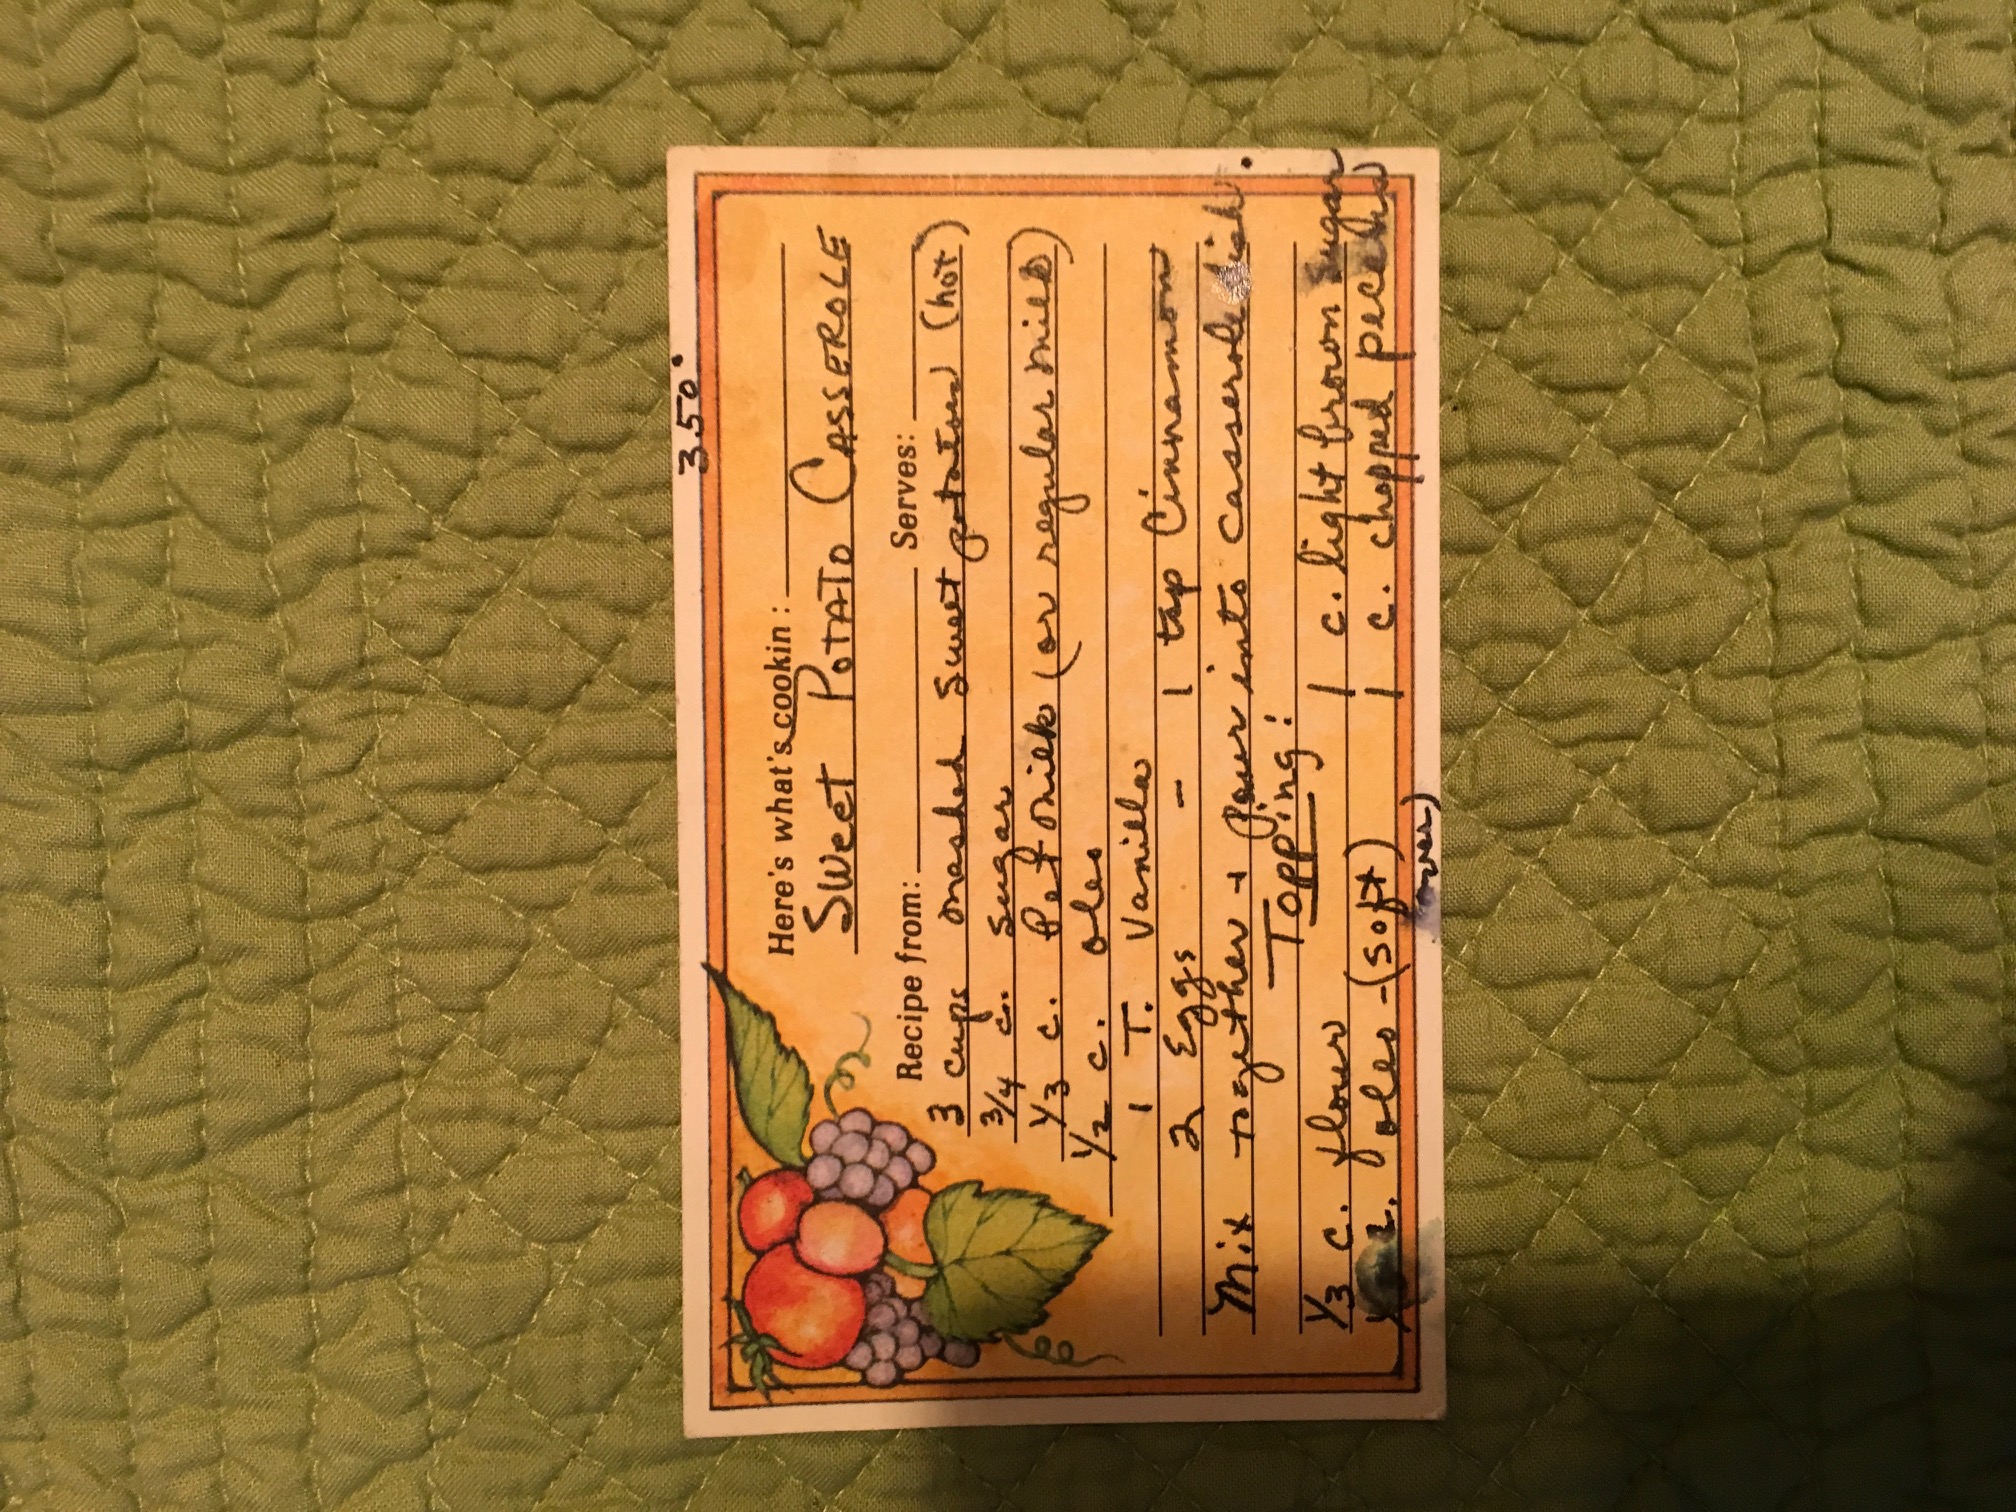 350°
Here's what's cookin :
Sweet Potato Casserole
Recipe from: Serves:
3 cups mashed sweet potatoes (hot)
3/4 c. sugar
1/3 c. Pet Milk (or regular milk)
1/2 c. oleo
1 T. Vanilla
2 Eggs - 1 tsp Cinnamon
Mix together + pour into casserole dish.
Topping:
1/3 c. flour 1 c. light brown sugar
c. oleo - (soft) 1 c. chopped pecans
over)